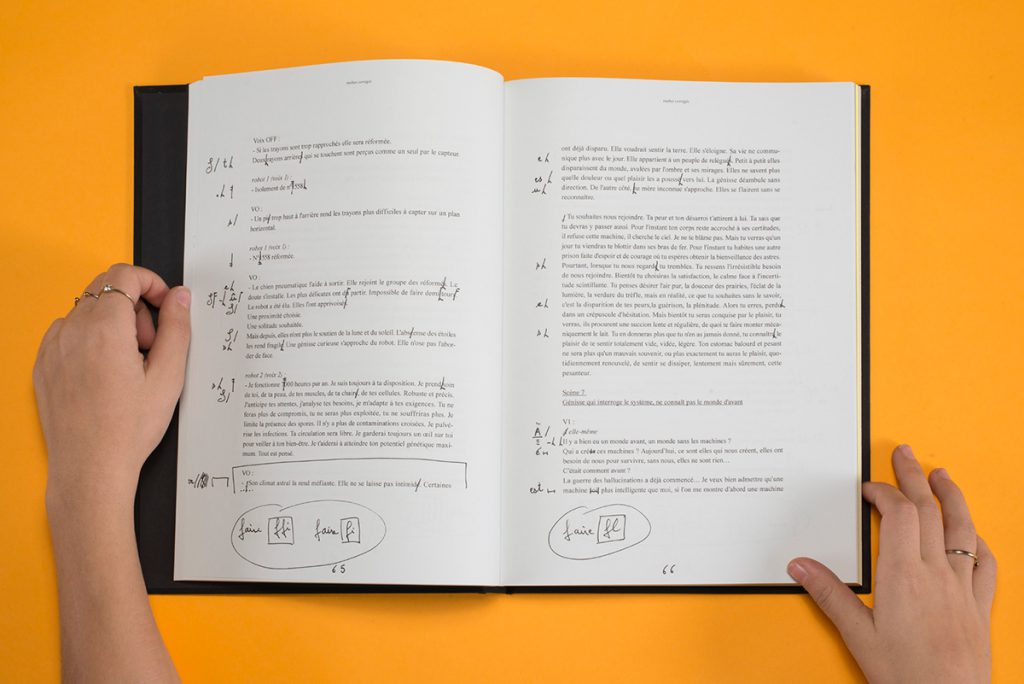 Voix OFF :
- Si les trayons sont trop rapprochés elle sera réformée.
Deux rayons arrière qui se touchent sont perçus comme un seul par le capteur.
robot 1 (voix 1) :
- Isolement de n°3558
VO :
- Un pi trop haut à l'arrière rend les trayons plus difficiles à capter sur un plan
horizontal.
robot 1 (voix 1) :
- N°3558 réformée.
VO :
- Le chien pneumatique l'aide à sortir. Elle rejoint le groupe des réformés. Le
doute s'installe. Les plus délicates ont du partir. Impossible de faire
Le robot a été élu. Elles l'ont apprivoisé.
Une proximité choisie.
Une solitude souhaitée.
Mais depuis, elles n'ont plus le soutien de la lune et du soleil. des étoiles
les rend fragile Une génisse curieuse s'approche du robot. Elle n'ose pas l'abor-
der de face.
robot 2 (voix 2) :
- Je fonctionne heures par an. Je suis toujours à ta disposition. Je prend soin
de toi, de ta peau, de tes muscles, de ta chair, de tes cellules. Robuste et précis.
J'anticipe tes attentes, j'analyse tes besoins, je m'adapte à tes exigences. Tu ne
feras plus de compromis, tu ne seras plus exploitée, tu ne souffriras plus. Je
limite la présence des spores. Il n'y a plus de contaminations croisées. Je pulvé-
rise les infections. Ta circulation sera libre. Je garderai toujours un œil sur toi
pour veiller à ton bien-être. Je t'aiderai à atteindre ton potentiel génétique maxi-
mum. Tout est pensé.
VO :
- Son climat astral la rend méfiante. Elle ne se laisse pas intimidé. Certaines
faire ffi faire fi
65
ont déjà disparu. Elle voudrait sentir la terre. Elle s'éloigne. Sa vie ne commu-
nique plus avec le jour. Elle appartient a un peuple de relégué. Petit à petit elles
disparaissent du monde, avalées par l'ombre et ses mirages. Elles ne savent plus
quelle douleur ou quel plaisir les a poussé vers lui. La génisse déambule sans
direction. De l'autre côté, mère inconnue s'approche. Elles se flairent sans se
reconnaître.
Tu souhaites nous rejoindre. Ta peur et ton désarroi t'attirent à lui. Tu sais que
tu devras y passer aussi. Pour l'instant ton corps reste accroché à ses certitudes,
il refuse cette machine, il cherche le ciel. Je ne te blâme pas. Mais tu verras qu'un
jour tu viendras te blottir dans ses bras de fer. Pour l'instant tu habites une autre
prison faite d'espoir et de courage où tu espères obtenir la bienveillance des astres.
Pourtant, lorsque tu nous regarde tu trembles. Tu ressens l'irrésistible besoin
de nous rejoindre. Bientôt tu choisiras la satisfaction, le calme face à l'incerti-
tude scintillante. Tu penses désirer l'air pur, la douceur des prairies, l'éclat de la
lumière, la verdure du trèfle, mais en réalité, ce que tu souhaites sans le savoir,
c'est la disparition de tes peurs, la guérison, la plénitude. Alors tu erres, perdu
dans un crépuscule d'hésitation. Mais bientôt tu seras conquise par le plaisir, tu
verras, ils procurent une succion lente et régulière, de quoi se faire monter méca-
niquement le lait. Tu en donneras plus que tu n'en as jamais donné, tu connaîtra le
plaisir de te sentir totalement vide, vidée, légère. Ton estomac balourd et pesant
ne sera plus qu'un mauvais souvenir, ou plus exactement tu auras le plaisir, quo-
tidiennement renouvelé, de sentir se dissiper, lentement mais sûrement, cette
pesanteur.
Scène 7
Génisse qui interroge le système, ne connaît pas le monde d'avant
V1 :
elle-même
Il y a bien eu un monde avant, un monde sans les machines ?
Qui a ces machines ? Aujourd'hui, ce sont elles qui nous créent, elles ont
besoin de nous pour survivre, sans nous, elles ne sont rien…
C'était comment avant ?
La guerre des hallucinations a déjà commencé… Je veux bien admettre qu'une
est machine plus intelligente que moi, si l'on me montre d'abord une machine
faire fl
66